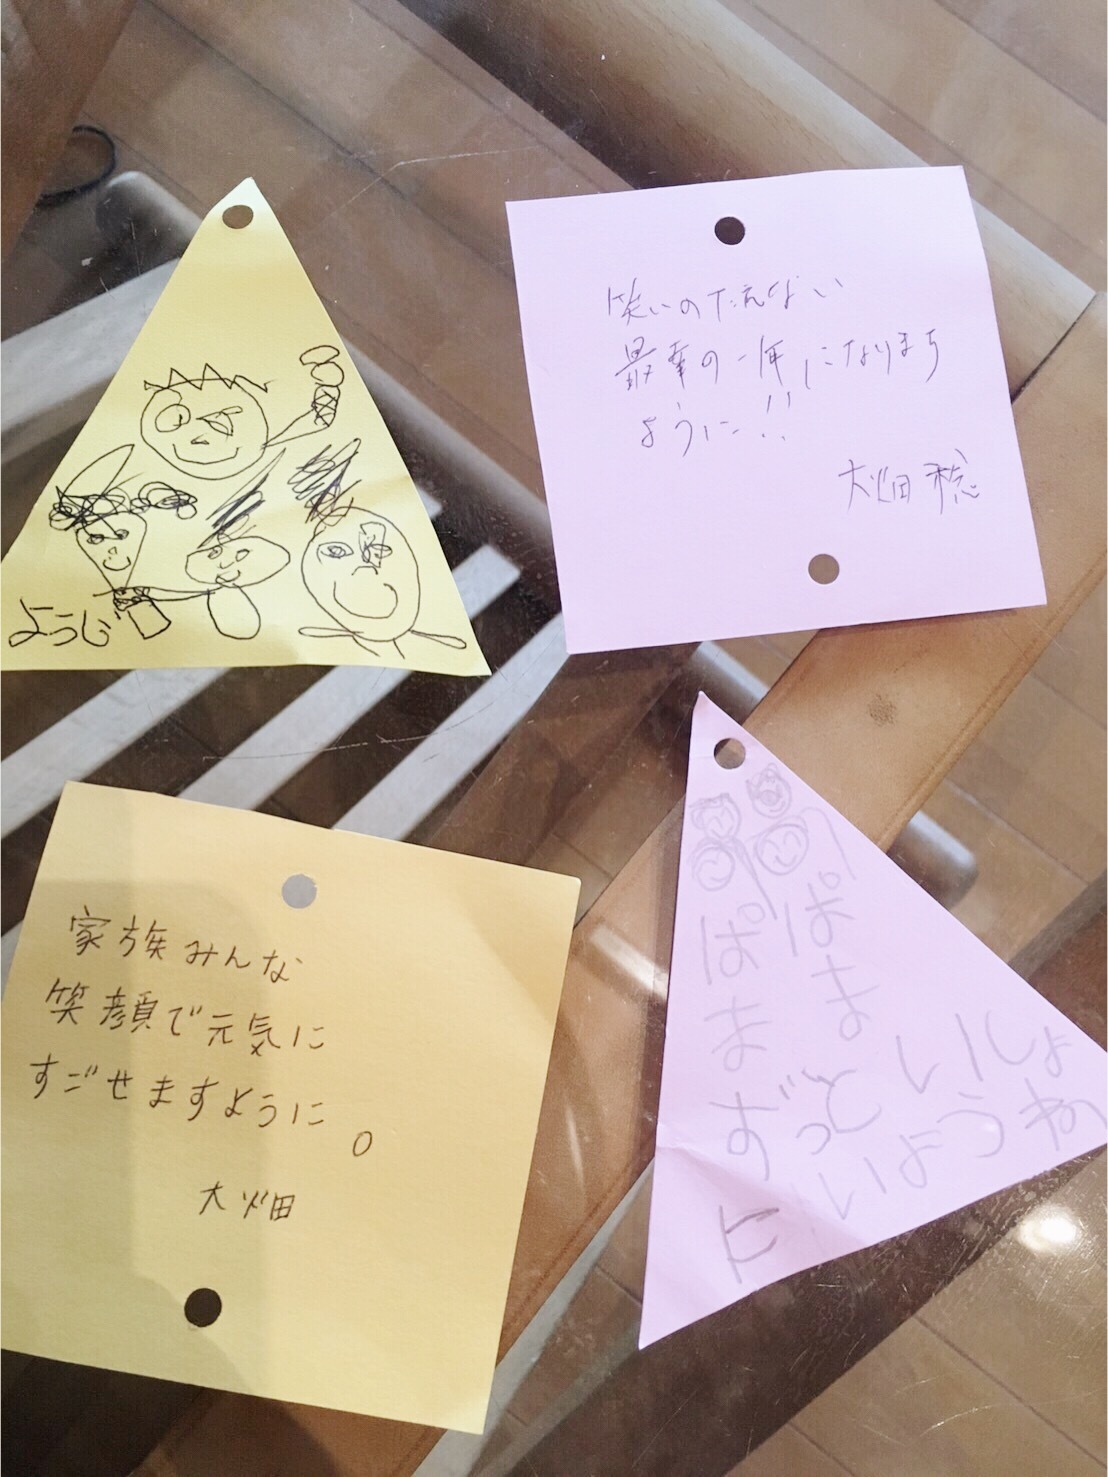 ようじ
笑いのたえない
最幸の一年になります
ように!!
大畑 稔
家族みんな
笑顔で元気に
すごせますように。
大畑
ぱぱ
まま
ずっと
いしょ